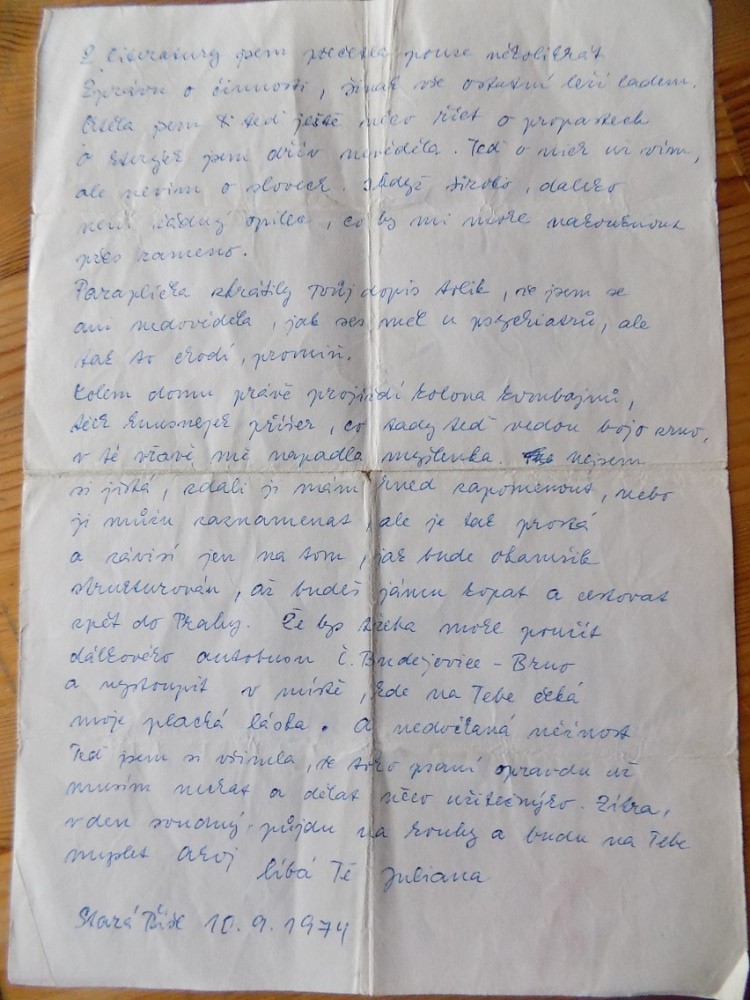 Z literatury jsem přečetla pouze několikrát
Zprávu o činnosti, jinak vše ostatní leží ladem.
Chtěla jsem ti teď ještě něco říct o propastech
O kterých jsem dřív nevěděla. Teď o nich už vím,
ale nevím o slovech. široko, daleko
není žádný opilec, co by mi mohl nakouknout
přes rameno.
Paraplíčka zkrátily Tvůj dopis tolik, že jsem se
ani nedověděla, jak ses měl u psychiatrů, ale
tak to chodí, promiň.
Kolem domu právě projíždí kolona kombajnů,
těch hnusnejch příšer, co tady teď vedou boj o zrno,
v té vřavě mě napadla myšlenka. nejsem
si jistá, zdali ji mám hned zapomenout, nebo
ji můžu zaznamenat, ale je tak prostá
a závisí jen na tom, jak bude okamžik
strukturován, až budeš jámu kopat a cestovat
zpět do Prahy. Že bys třeba mohl použít
dálkového autobusu Č. Budejovice - Brno
a vystoupit v místě, kde na Tebe čeká
moje plachá láska. A nedočkaná něžnost
Teď jsem si všimla, že toho psaní opravdu už
musím nechat a dělat něco užitečnýho. Zítra,
v den soudný půjdu na houby a budu na Tebe
myslet Ahoj
líbá Tě Juliana
Stará Říše 10.9.1974